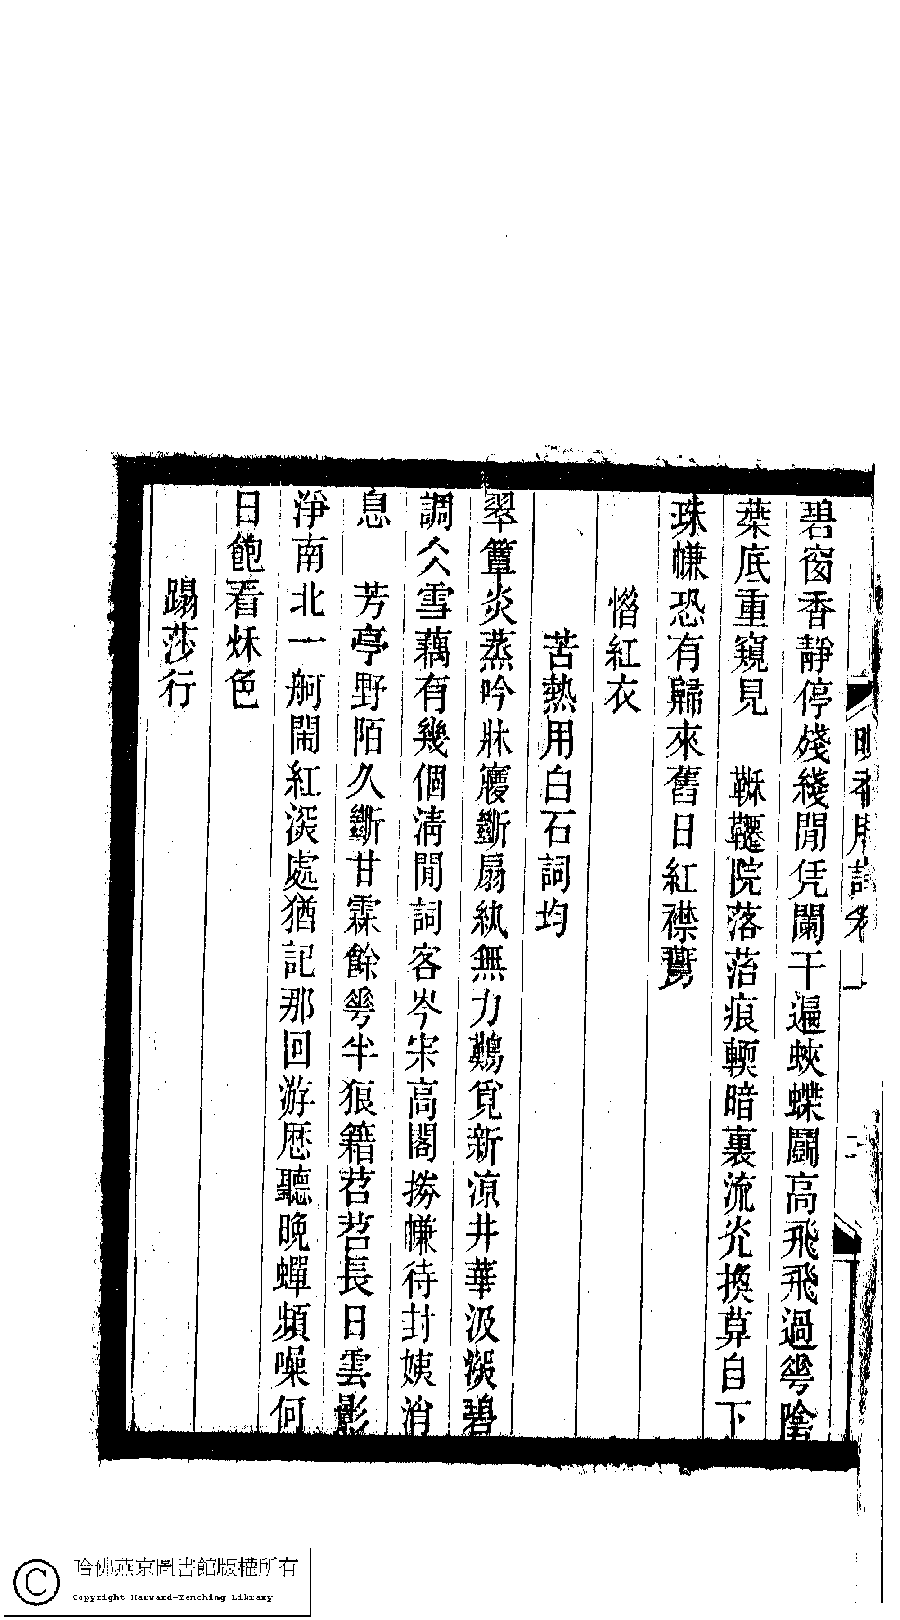 碧窗香靜停殘綫閒凭闌干遍蛺蝶鬬高飛飛過等陰
葉底重窺見　鞦韆院落萡痕輭暗裏流光換草自下
珠㡘恐有歸來舊日紅襟鷰
惜紅衣
苦熱用白石詞均
翠簟炎蒸吟牀㝱斷扇紈無力鷄覓新涼井華汲深碧
調仌雪藕有幾個淸閒詞客岑宋高閣撈㡘待封姨消
息　芳亭野陌久斷甘霖餘等半狼籍苕苕長日雲影
淨南北一舸鬧紅深處猶記那回游歷聽晚蟬頻噪何
日飽看秌色
蹋莎行
哈佛燕京圖書館版權所有
Copyright Harvard-Yenching Library